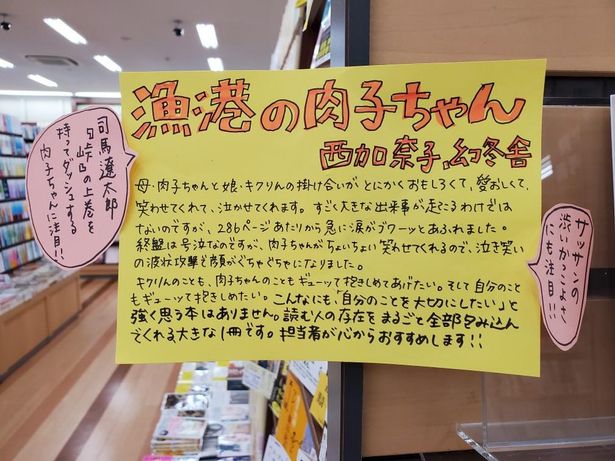 漁港の肉子ちゃん
西加奈子、幻冬舎
母・肉子ちゃんと娘・キクりんの掛け合いがとにかくおもしろくて、愛おしくて、
笑わせてくれて、泣かせてくれます。すごく大きな出来事が起こるわけでは
ないのですが、286ページあたりから急に涙がブワーッとあふれました。
終盤は号泣なのですが、肉子ちゃんがちょいちょい笑わせてくるので、泣き笑い
の波状攻撃で顔がぐちゃぐちゃになりました。
キクりんのことも、肉子ちゃんのこともギューッて抱きしめてあげたい。そして自分のこと
もギューッて抱きしめたい。こんなにも「自分のことを大切にしたい」と
強く思う本はありません。読む人の存在をまるごと全部包み込ん
でくれる大きな1冊です。担当者が心からおすすめします!!
司馬遼太郎
「峠」の上巻を
持ってダッシュする
肉子ちゃんに注目!!
サッサンの
渋いかっこよさ
にも注目!!!